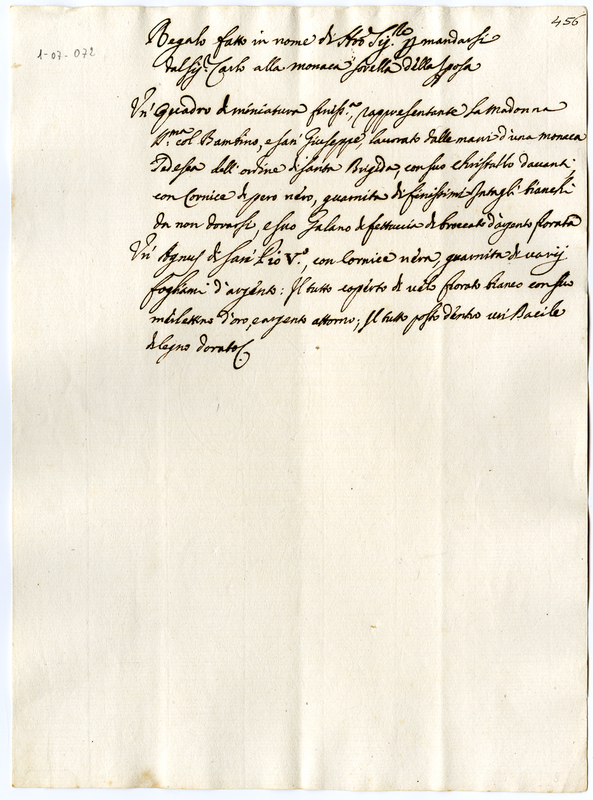 456
1-07-072
Regalo fatto in nome di Sig.re p mandarsi
dal Sig.r Carlo alla monaca sorella della sposa
Un' quadro di miniatura finiss.mo rappresentante la Madonna
S.ma col Bambino, e san' Giuseppe, lavorato dalle mani d'una monaca
Tedesca dell'ordine di santa Brigida, con suo christallo davanti
con Cornice di pero nero, guarnita di finissimi Intagli bianchi
da non dorarsi, e suo Galano di fettuccia di broccato d'argento florata
Un' Agnus di san' Pio V.o, con Cornice nera, guarnita di varij
fogliami d'argento: Il tutto coperto di velo florato bianco con suo
merlettino d'oro, e argento attorno; Il tutto posto dentro un' Bacile
di legno dorato